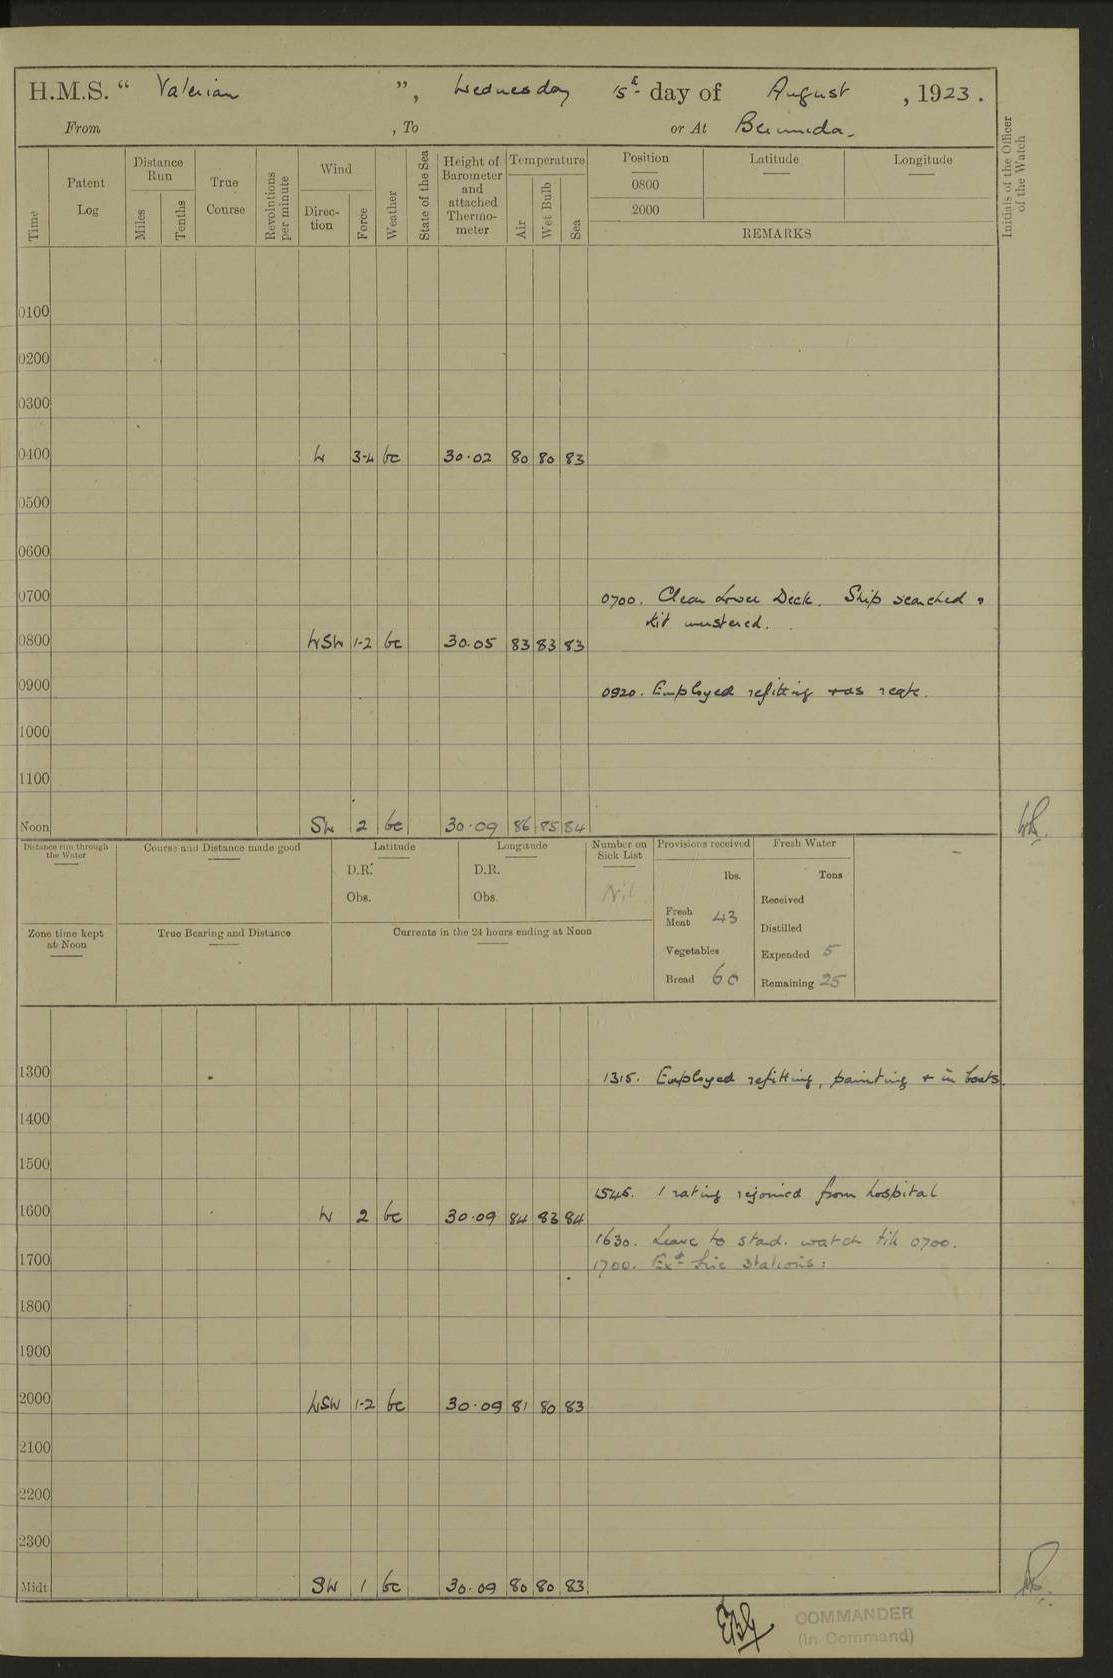 H.M.S. “ Valerian ”, Wednesday 15th day of August , 1923.
From , To or At Bermuda.
Time
Patent Log
Distance Run
Miles
Tenths
True Course
Revolutions per minute
Wind
Direc- tion
Force
Weather
State of the Sea
Height of Barometer and attached Thermo- meter
Temperature
Air
Wet Bulb
Sea
Position
Latitude
Longitude
0800
2000
REMARKS
Initials of the Officer of the Watch
0100
0200
0300
0400 W 3-4 bc 30.02 80 80 83
0500
0600
0700 0700. Clear Lower Deck. Ship searched &
kit mustered.
0800 WSW 1-2 bc 30.05 83 83 83
0900 0920. Employed refitting + as reqte.
1000
1100
Noon SW 2 bc 30.09 86 85 84
Distance run through the Water
Course and Distance made good
Latitude
D.R.
Obs.
Longitude
D.R.
Obs.
Number on Sick List
Nil
Provisions received
lbs.
Fresh Meat 43
Vegetables
Bread 60
Fresh Water
Tons
Received
Distilled
Expended 5
Remaining 25
Zone time kept at Noon
True Bearing and Distance
Currents in the 24 hours ending at Noon
1300 1315. Employed refitting, painting + in boats.
1400
1500
1545. 1 rating rejoined from hospital
1600 W 2 bc 30.09 84 83 84
1630. Leave to stbd. watch till 0700.
1700 1700. Exd fire stations:
1800
1900
2000 WSW 1-2 bc 30.09 81 80 83
2100
2200
2300
Midt. SW 1 bc 30.09 80 80 83
COMMANDER
(In Command)